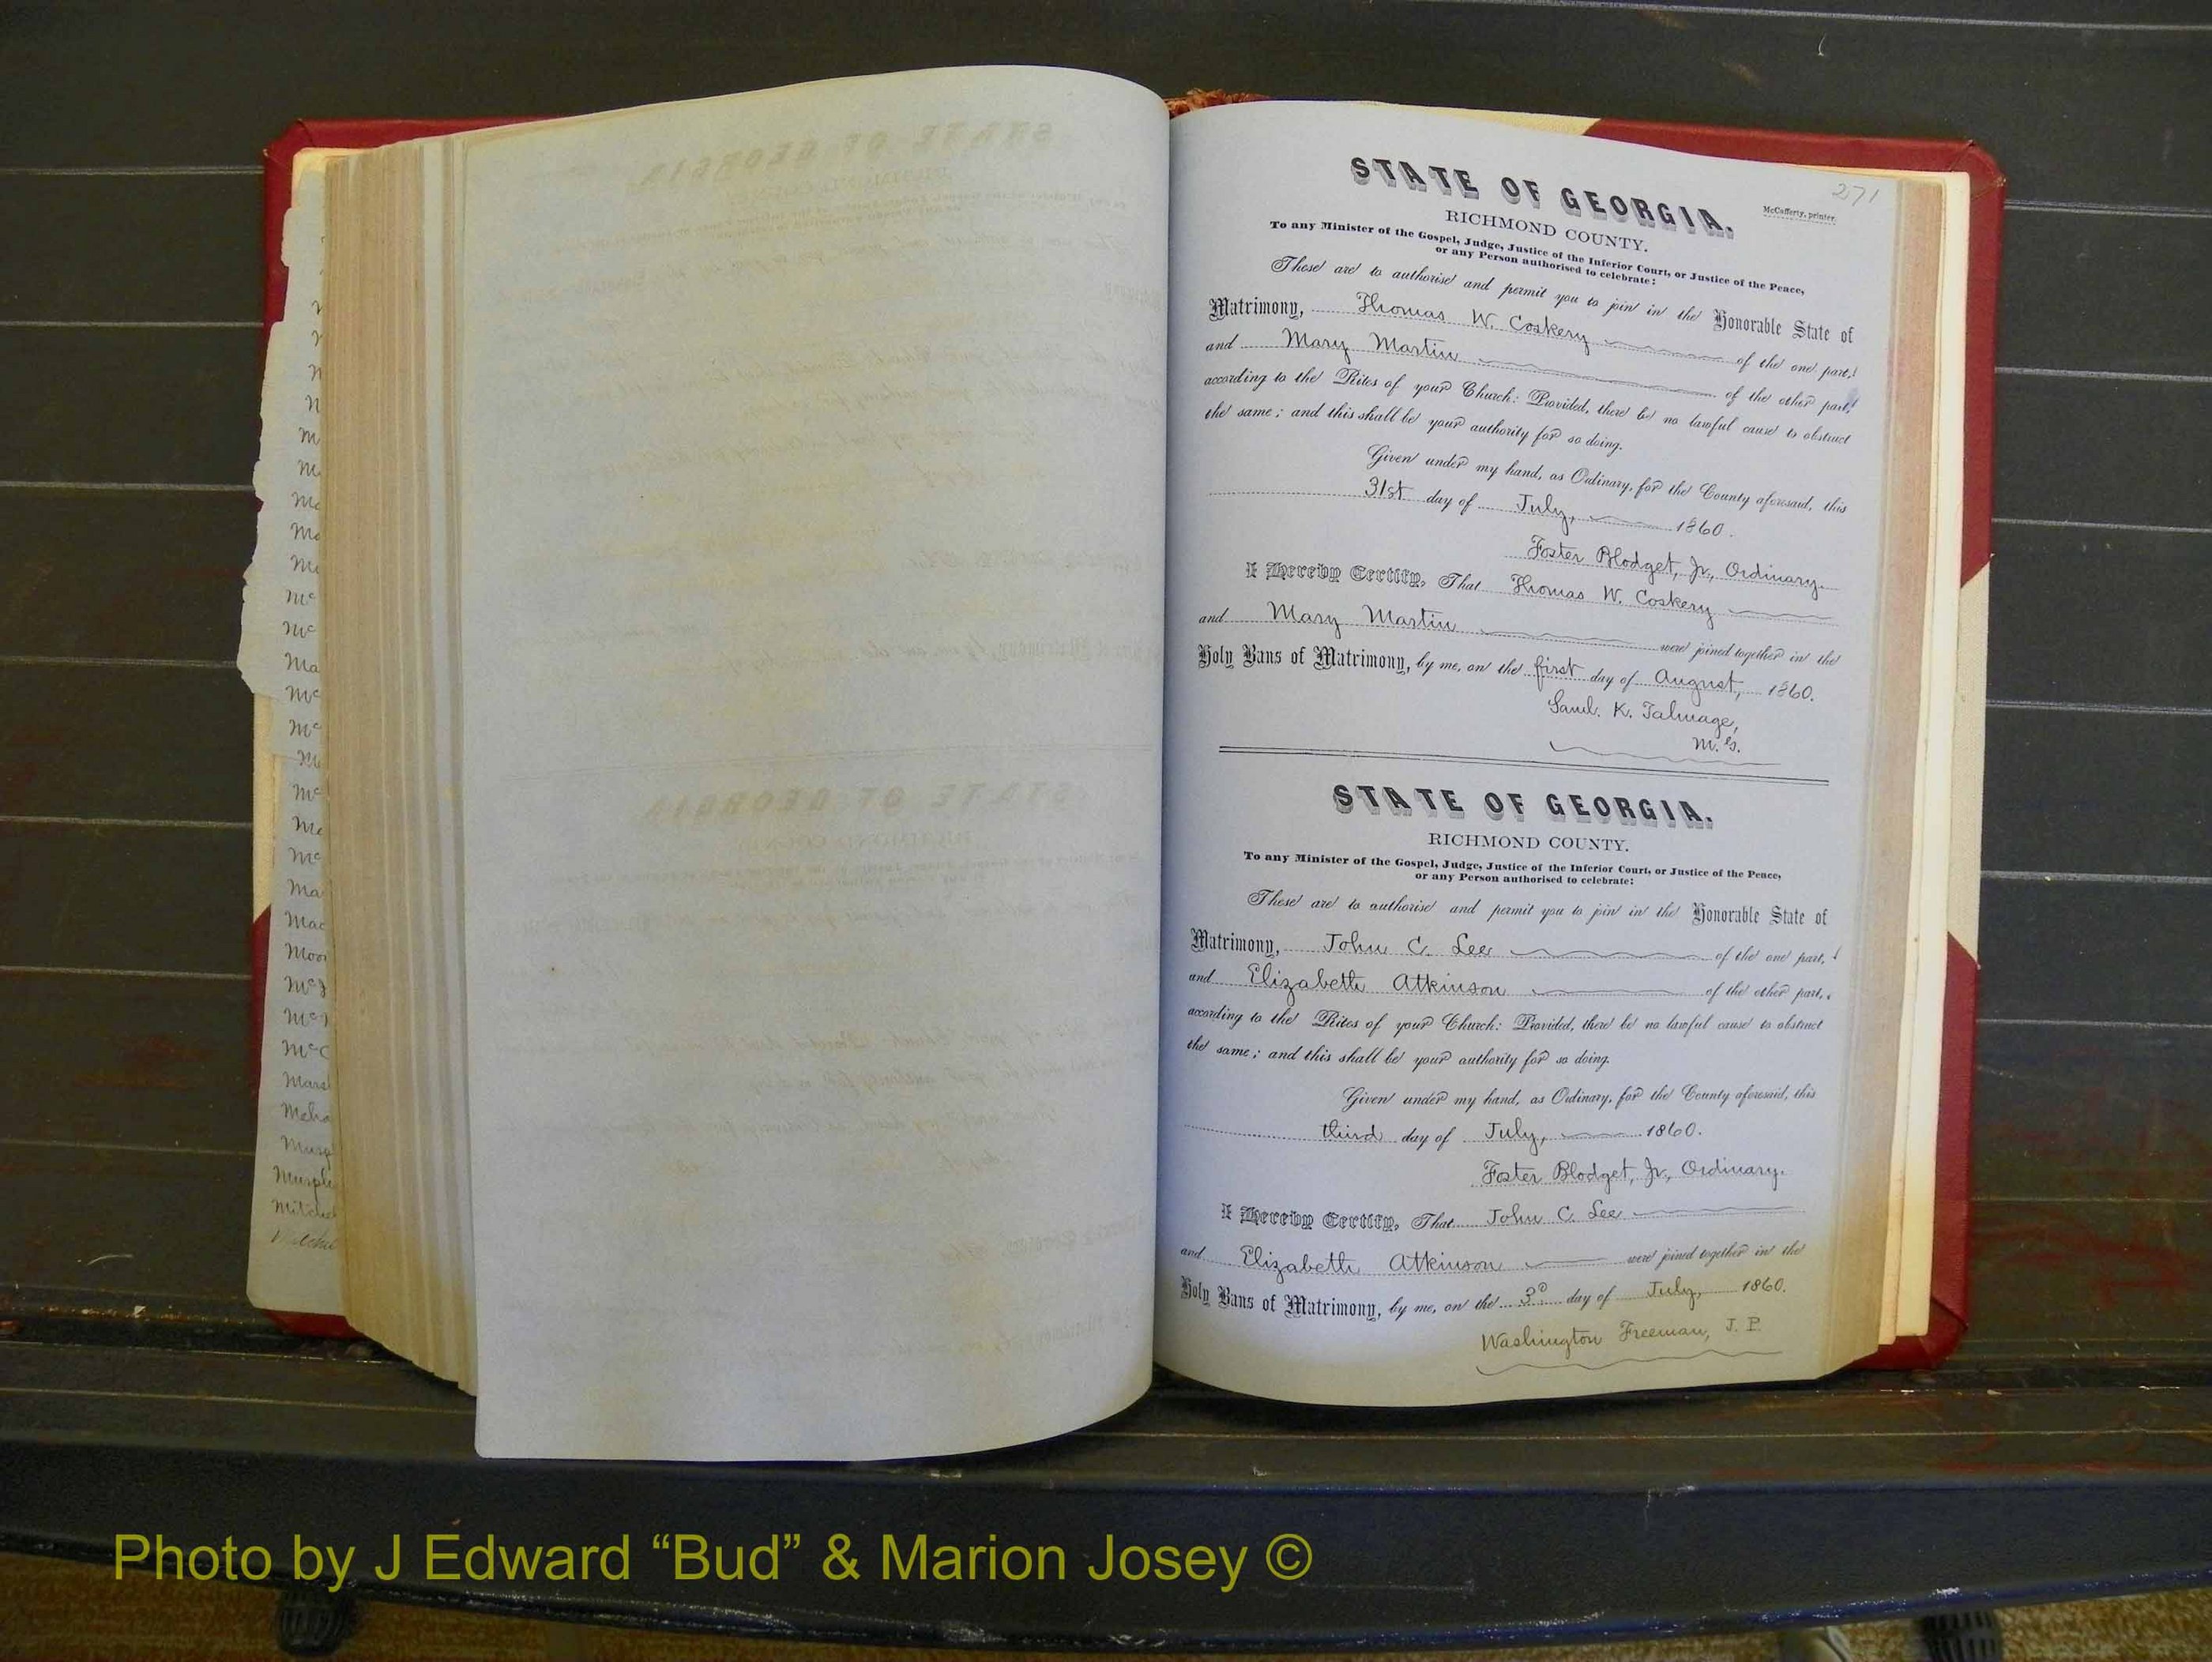 271
STATE OF GEORGIA.
McCafferty, printer.
RICHMOND COUNTY.
To any Minister of the Gospel, Judge, Justice of the Inferior Court, or Justice of the Peace,
or any Person authorised to celebrate:
These are to authorise and permit you to join in the Honorable State of
Matrimony, Thomas W. Coskery of the one part,
and Mary Martin of the other part,
according to the Rites of your Church: Provided, there be no lawful cause to obstruct
the same; and this shall be your authority for so doing.
Given under my hand, as Ordinary, for the County aforesaid, this
31st day of July, 1860.
Foster Blodget, Jr., Ordinary.
I Hereby Certify, That Thomas W. Coskery
and Mary Martin were joined together in the
Holy Bans of Matrimony, by me, on the first day of August, 1860.
Saml. K. Talmage,
STATE OF GEORGIA.
RICHMOND COUNTY.
To any Minister of the Gospel, Judge, Justice of the Inferior Court, or Justice of the Peace,
or any Person authorised to celebrate:
These are to authorise and permit you to join in the Honorable State of
Matrimony, John C. Lee of the one part,
and Elizabeth Atkinson of the other part,
according to the Rites of your Church: Provided, there be no lawful cause to obstruct
the same; and this shall be your authority for so doing.
Given under my hand, as Ordinary, for the County aforesaid, this
third day of July, 1860.
Foster Blodget, Jr., Ordinary.
I Hereby Certify, That John C. Lee
and Elizabeth Atkinson were joined together in the
Holy Bans of Matrimony, by me, on the 3D day of July, 1860.
Washington Freeman, J. P.
Photo by J Edward “Bud” & Marion Josey ©